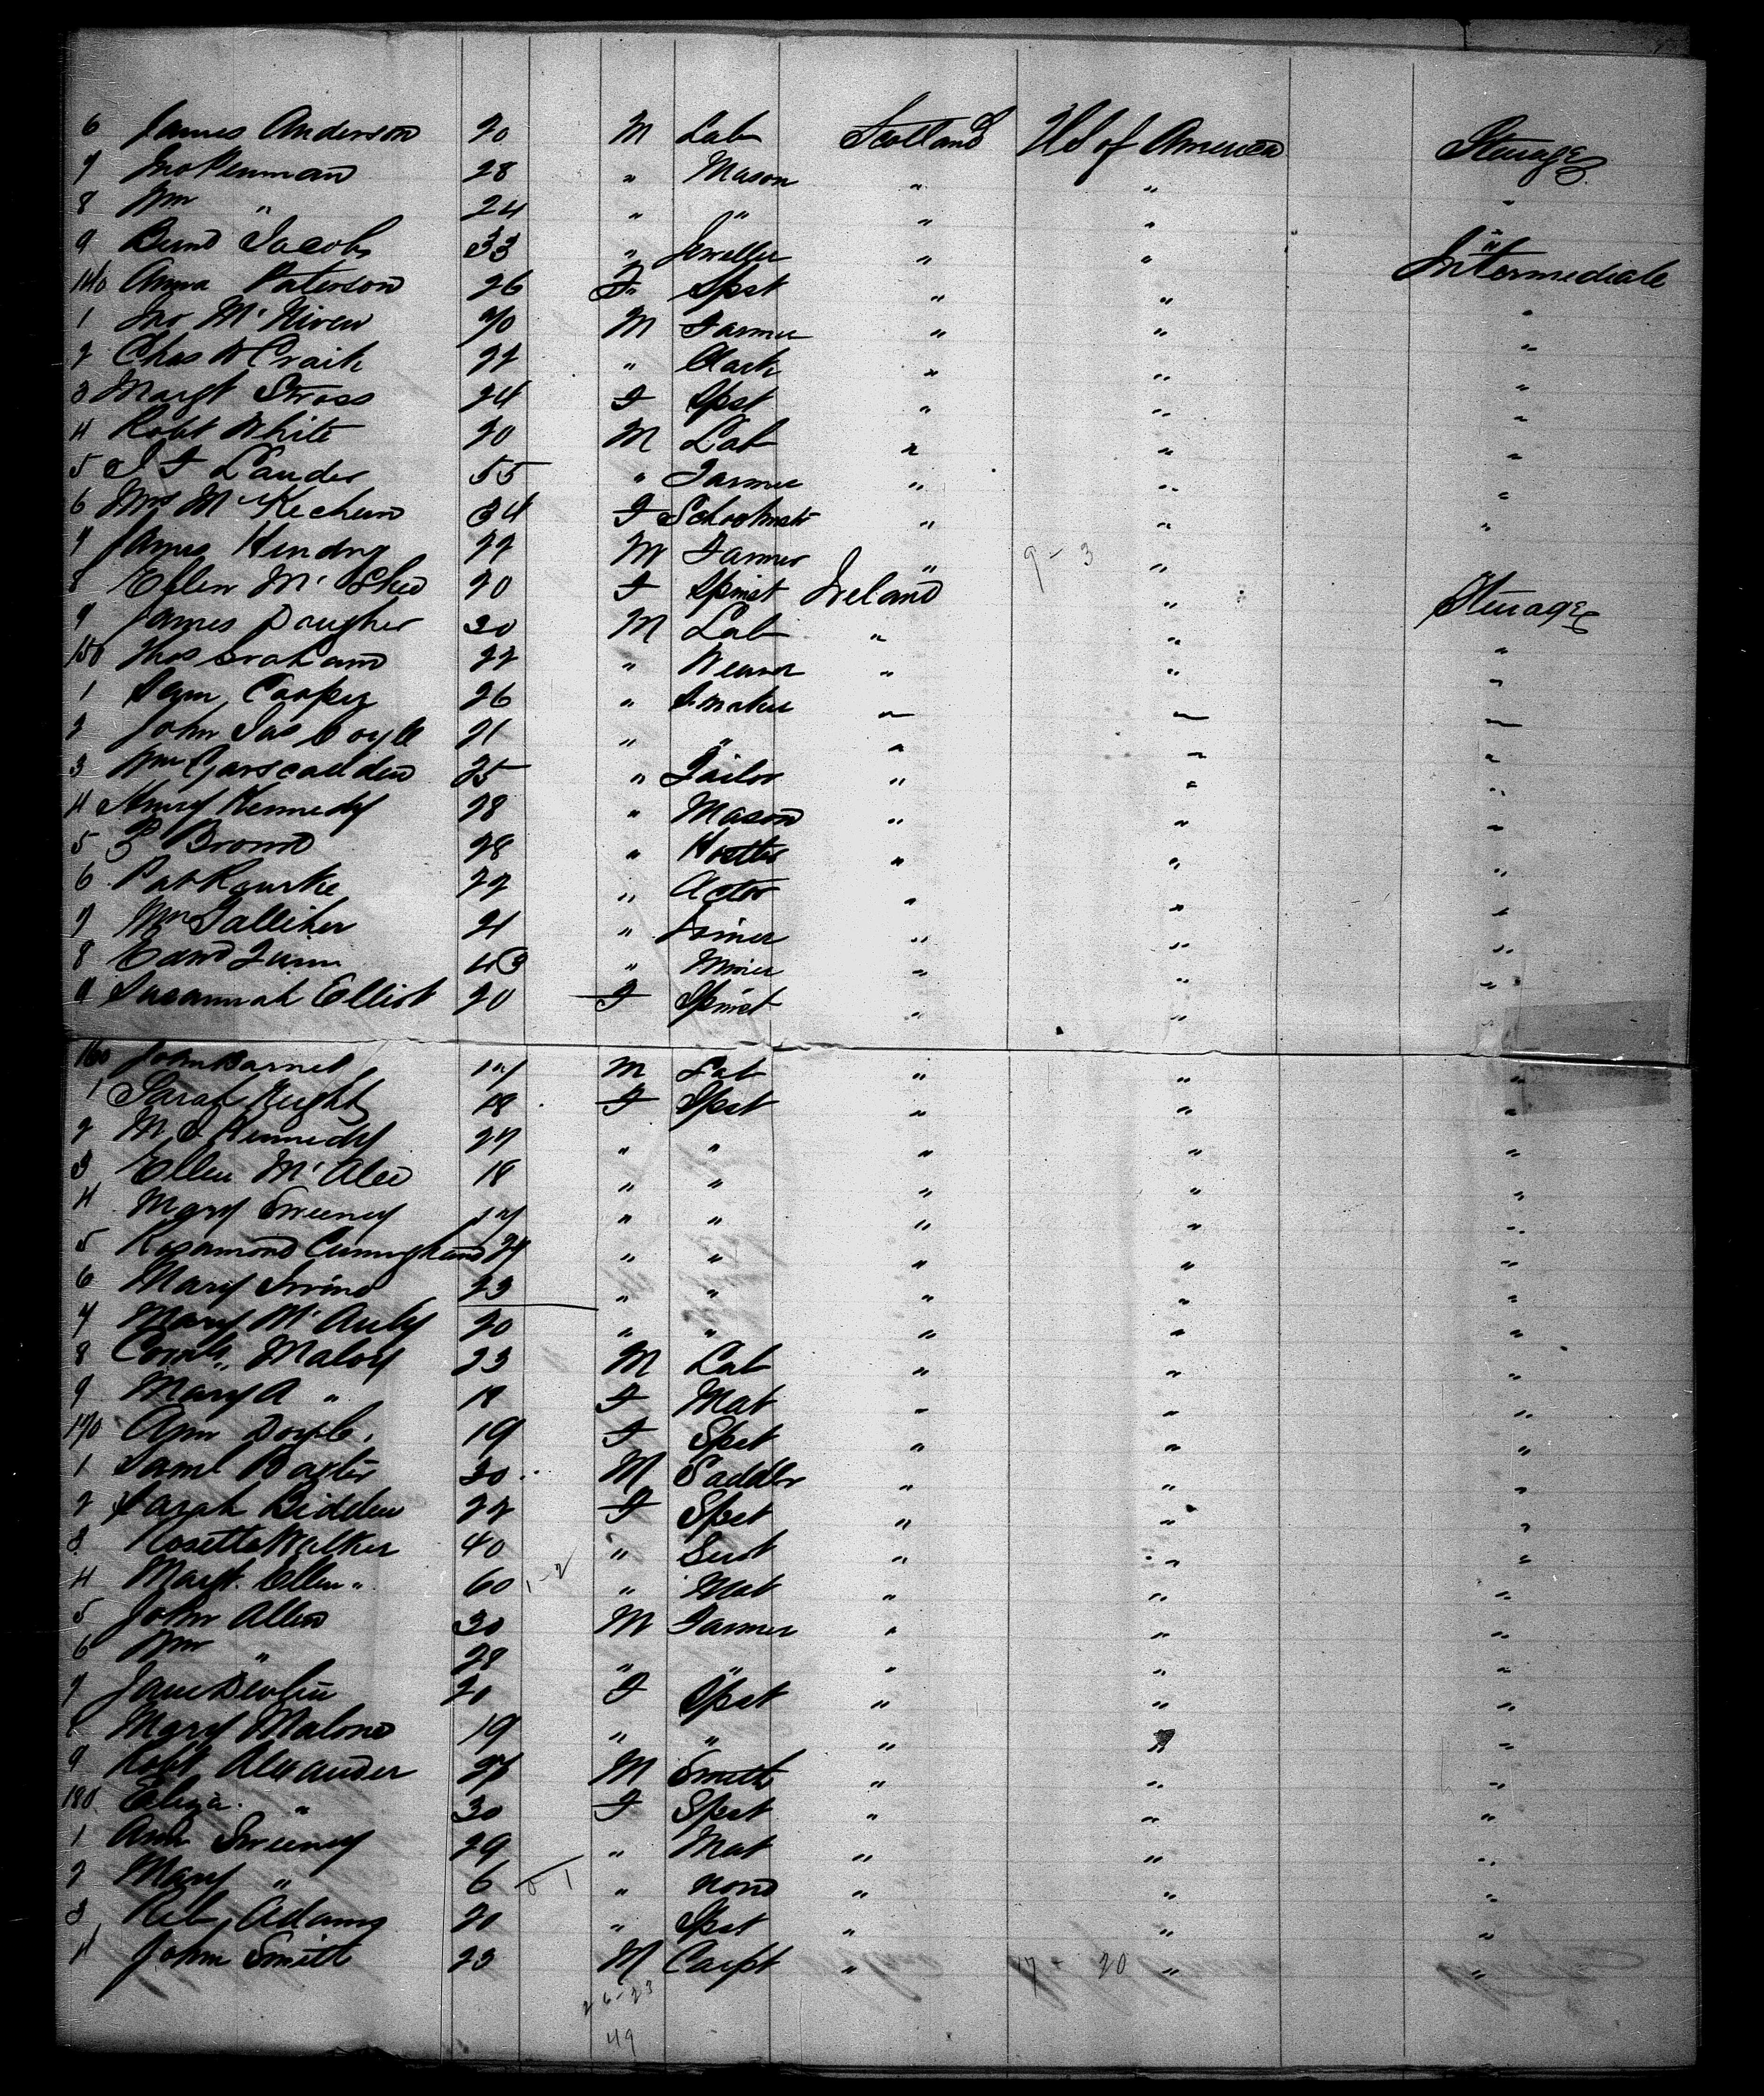 6 James Anderson 20 M Lab Scotland US of America Steerage
7 Jno Penman 28 " Mason " " "
8 Wm " 24 " " " " "
9 Bend Jacobs 33 " Jeweller " " Intermediate
140 Anna Paterson 26 F Spst " " "
1 Jno McNiven 70 M Farmer " " "
2 Chas W Craik 22 " Clark " " "
3 Margt Stross 24 F Spst " " "
4 Robt White 20 M Lab " " "
5 J F Lauder 55 " Farmer " " "
6 Mrs McKechern 34 F " " "
7 James Hendry 22 M Farmer " 9 - 3 "
8 Ellen M' 20 F Spinst Ireland " Steerage
9 James Dougher 30 M Lab " " "
150 Thos Graham 22 " Weaver " " "
1 Sam Cooper 26 " Smaker " " "
2 John Jas Coyle 21 " " " " "
3 Wm Garscadden 25 " Tailor " " "
4 Henry Kennedy 28 " Mason " " "
5 Brown 28 " Hostler " " "
6 Pat Rourke 22 " Actor " " "
7 Wm Galliher 21 " Joiner " " "
8 Edwd Quinn 43 " Miner " " "
9 Susannah Elliot 20 F Spinst " "
160 John Barnet 17 M Lab " " "
1 Sarah Knight 18 F Spst " " "
2 M J Kennedy 27 " " " " "
3 Ellen McAlee 18 " " " " "
4 Mary Sweeney 17 " " " " "
5 Rosamond Cuningham 24 " " " " "
6 Mary Irvine 23 " " " " "
7 Mary McAuly 20 " " " " "
8 Cornls Maloy 23 M Lab " " "
9 Mary A " 18 F Mat " " "
170 Ann Doyle 19 F Spst " " "
1 Saml Baxter 30 M Saddler " " "
2 Sarah 22 F Spst " " "
3 Rosetta Walker 40 " Sert " " "
4 Margt. Ellen " 60 1 - 2 " Mat " " "
5 John Allen 30 M Farmer " " "
6 Wm " 28 " " " " "
7 Jane Devlin 20 F Spst " " "
8 Mary Malone 19 " " " " "
9 Robt Alexander 27 M Smith " " "
180 Eliza " 30 F Spst " " "
1 Ann Sweeney 29 " Mat " " "
2 Mary " 6 0 1 " None " " "
3 Reb Adams 20 " Spst " " "
4 John Smith 23 M Carpt " 17 - 20 " "
26-23
49